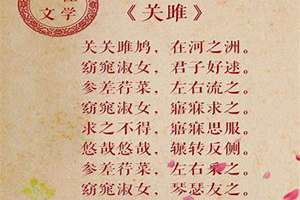 文学
《关雎》
关关雎鸠，在河之洲。
窈窕淑女，君子好逑。
参差荇菜，左右流之。
窈窕淑女，寤寐求之。
求之不得，寤寐思服。
悠哉悠哉，辗转反侧。
参差荇菜，左右采之。
窈窕淑女，琴瑟友之。